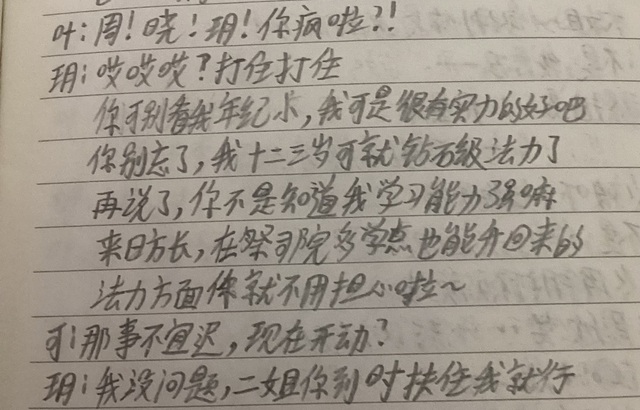 叶：周！晓！玥！你疯啦？！
玥：哎哎哎？打住打住
你可别看我年纪小，我可是很有实力的好吧
你别忘了，我十二三岁可就钻石级法力了
再说了，你不是知道我学习能力强嘛
来日方长，在祭司院多学点也能升回来的
法力方面你就不用担心啦～
可：那事不宜迟，现在开动？
玥：我没问题，二姐你到时扶住我就行